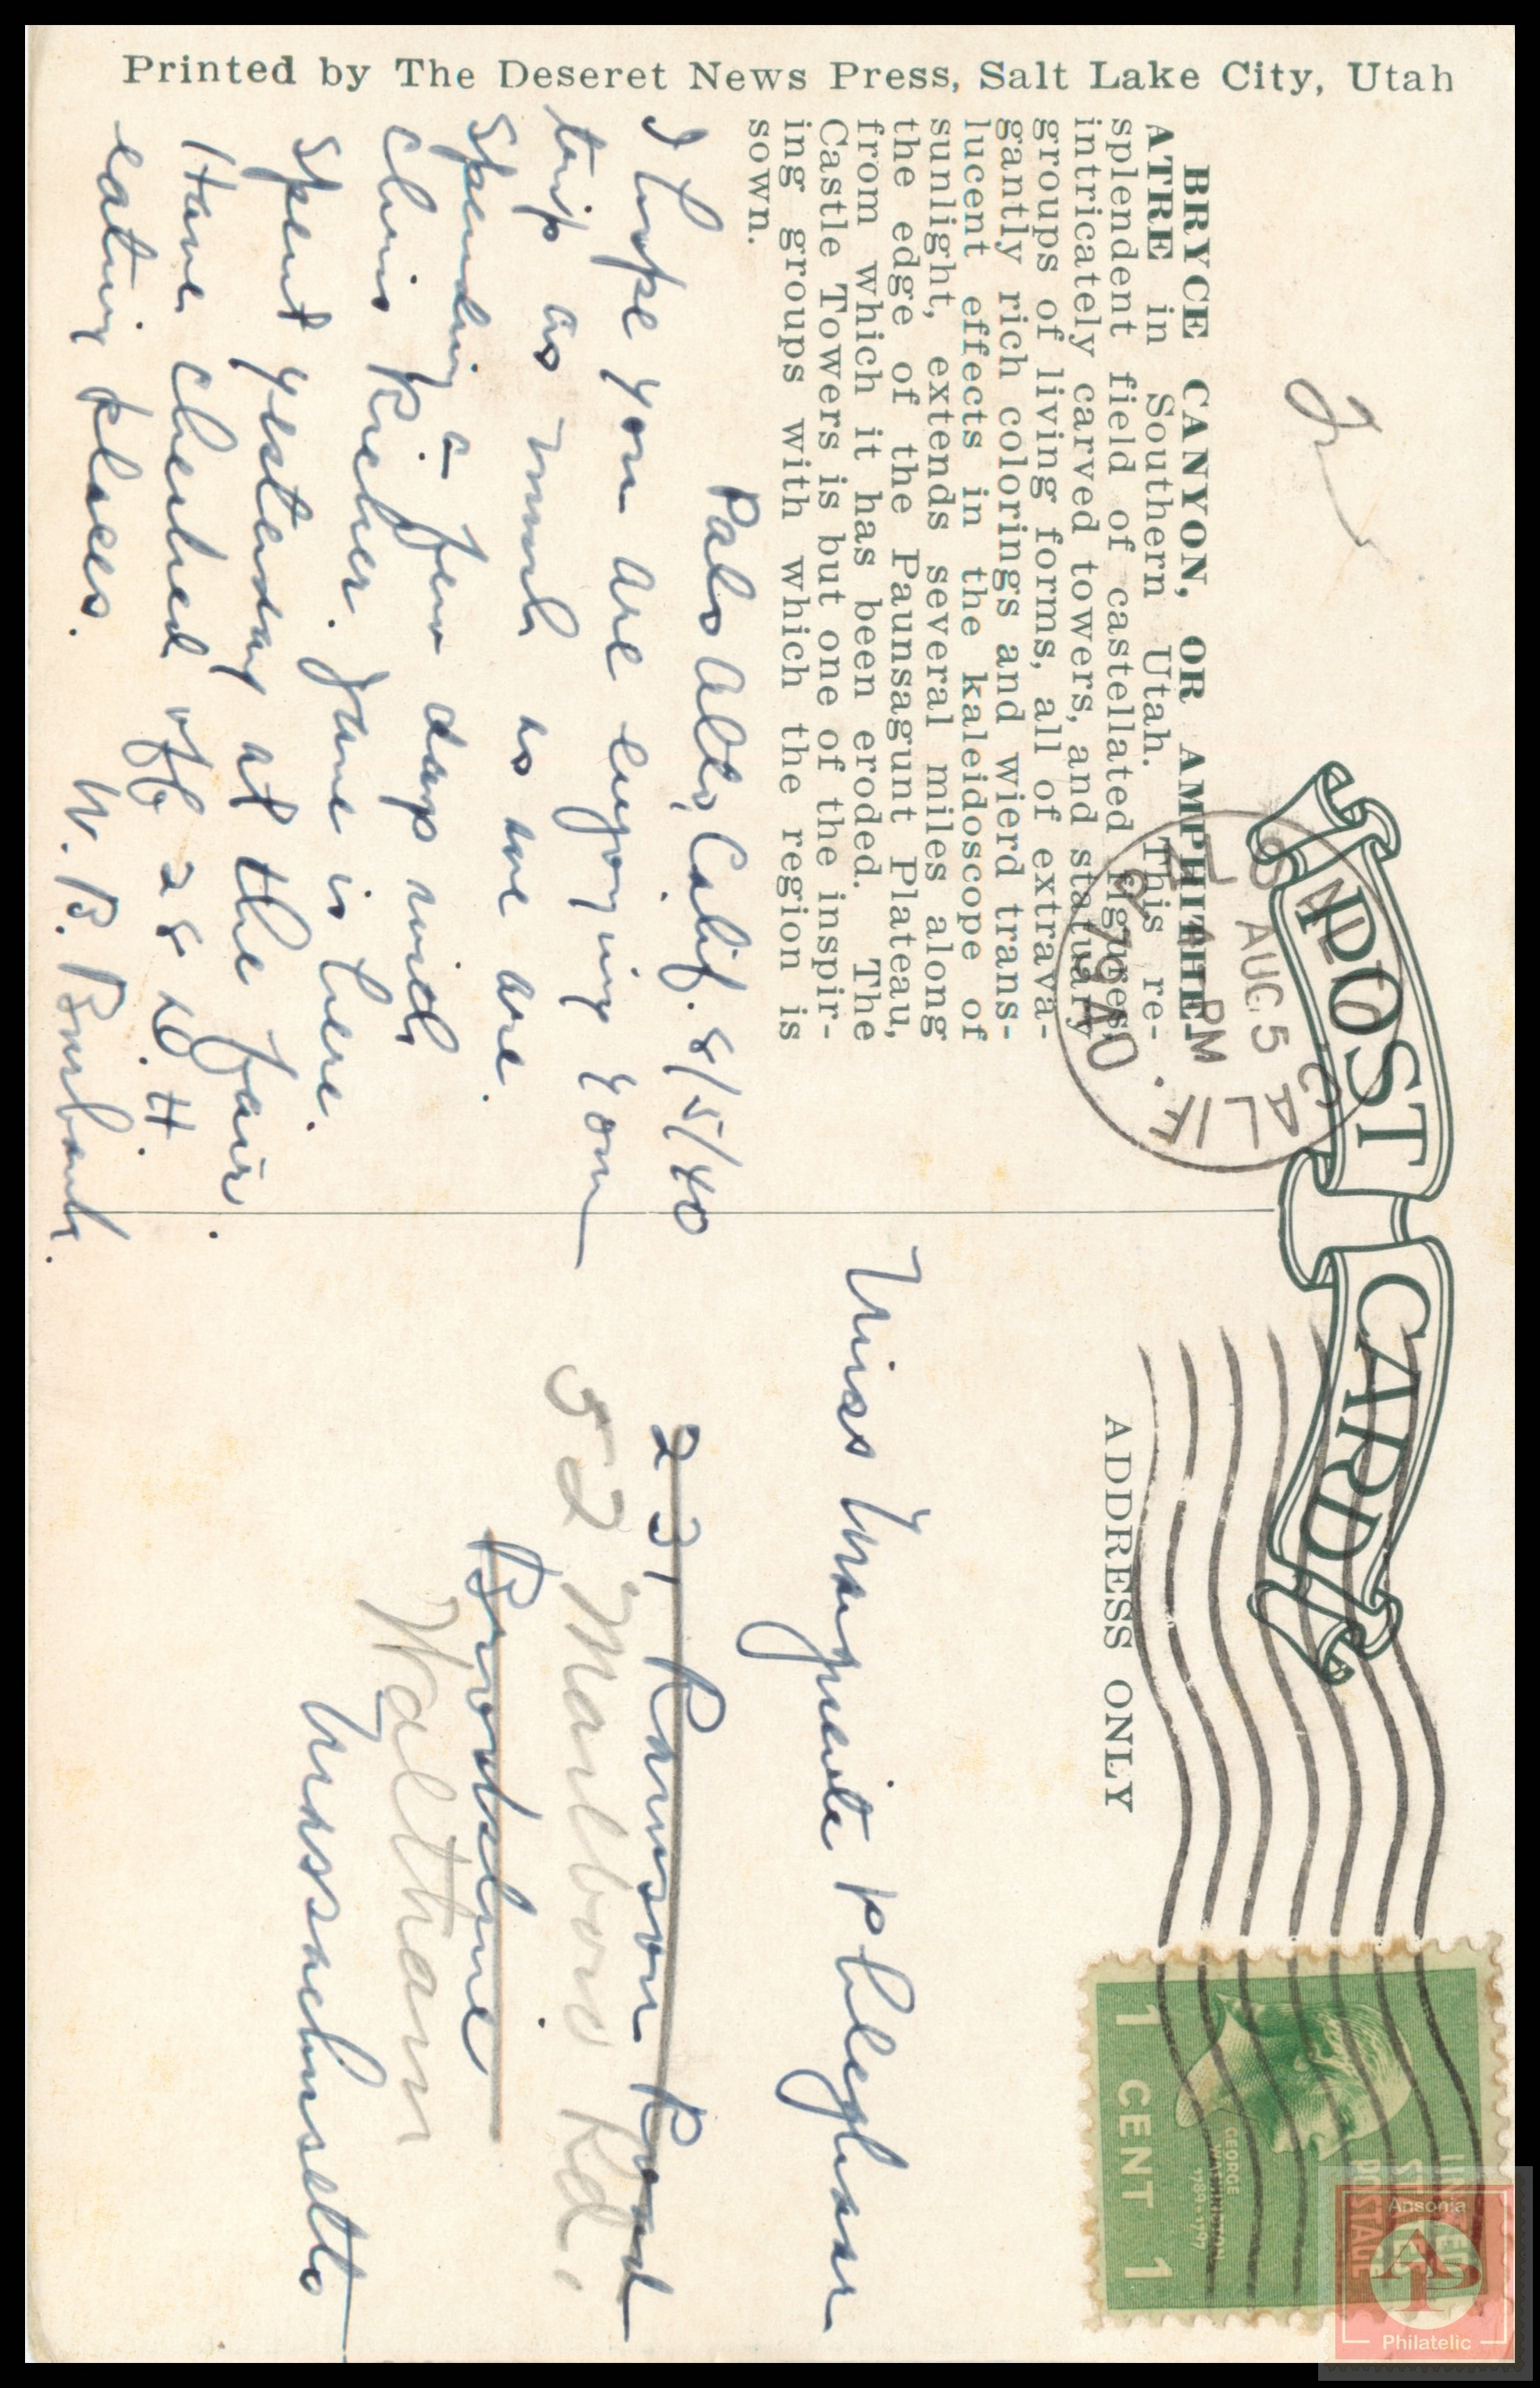 POST CARD
ADDRESS ONLY
AUG 5
PM
1940
CALIF.
UNITED
STATES
POSTAGE
GEORGE
WASHINGTON
1789-1797
1 CENT 1
BRYCE CANYON, OR AMPHITHE-
ATRE in Southern Utah. This re-
splendent field of castellated figures
intricately carved towers, and statuary
groups of living forms, all of extrava-
gantly rich colorings and wierd trans-
lucent effects in the kaleidoscope of
sunlight, extends several miles along
the edge of the Paunsagunt Plateau,
from which it has been eroded. The
Castle Towers is but one of the inspir-
ing groups with which the region is
sown.
Palo Alto, Calif. 8/5/40
I hope you are enjoying your
trip as much as we are.
Spending a few days with
Chris Richer. Jane is here.
Spent yesterday at the fair.
Have checked off 2 & D.H.
eating places.
W. B.
Miss Marguerite
231 Rawson Road
52 Marlboro Rd.
Brookline
Waltham
Massachusetts
Printed by The Deseret News Press, Salt Lake City, Utah
Ansonia
AP
Philatelic